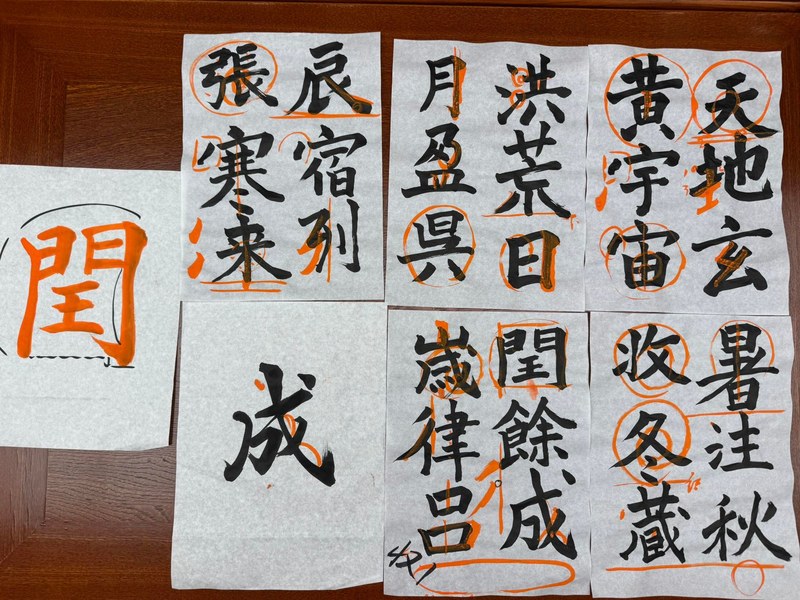 天地玄
黄宇宙
洪荒日
月盈呉
辰宿列
張寒来
暑注秋
收冬蔵
閏餘成
歳律呂
成
閏